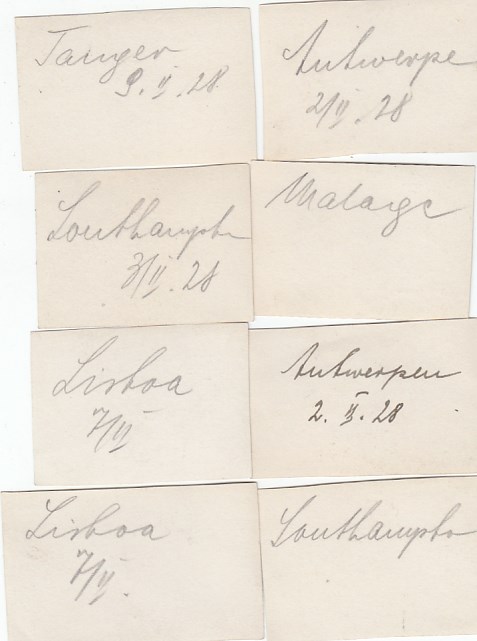 Tanger
9. II. 28
Antwerpe
2/II. 28
Southampto
3/II. 28
Malaga
Lisboa
7/II
Antwerpen
2. II. 28
Lisboa
7/II.
Southampto